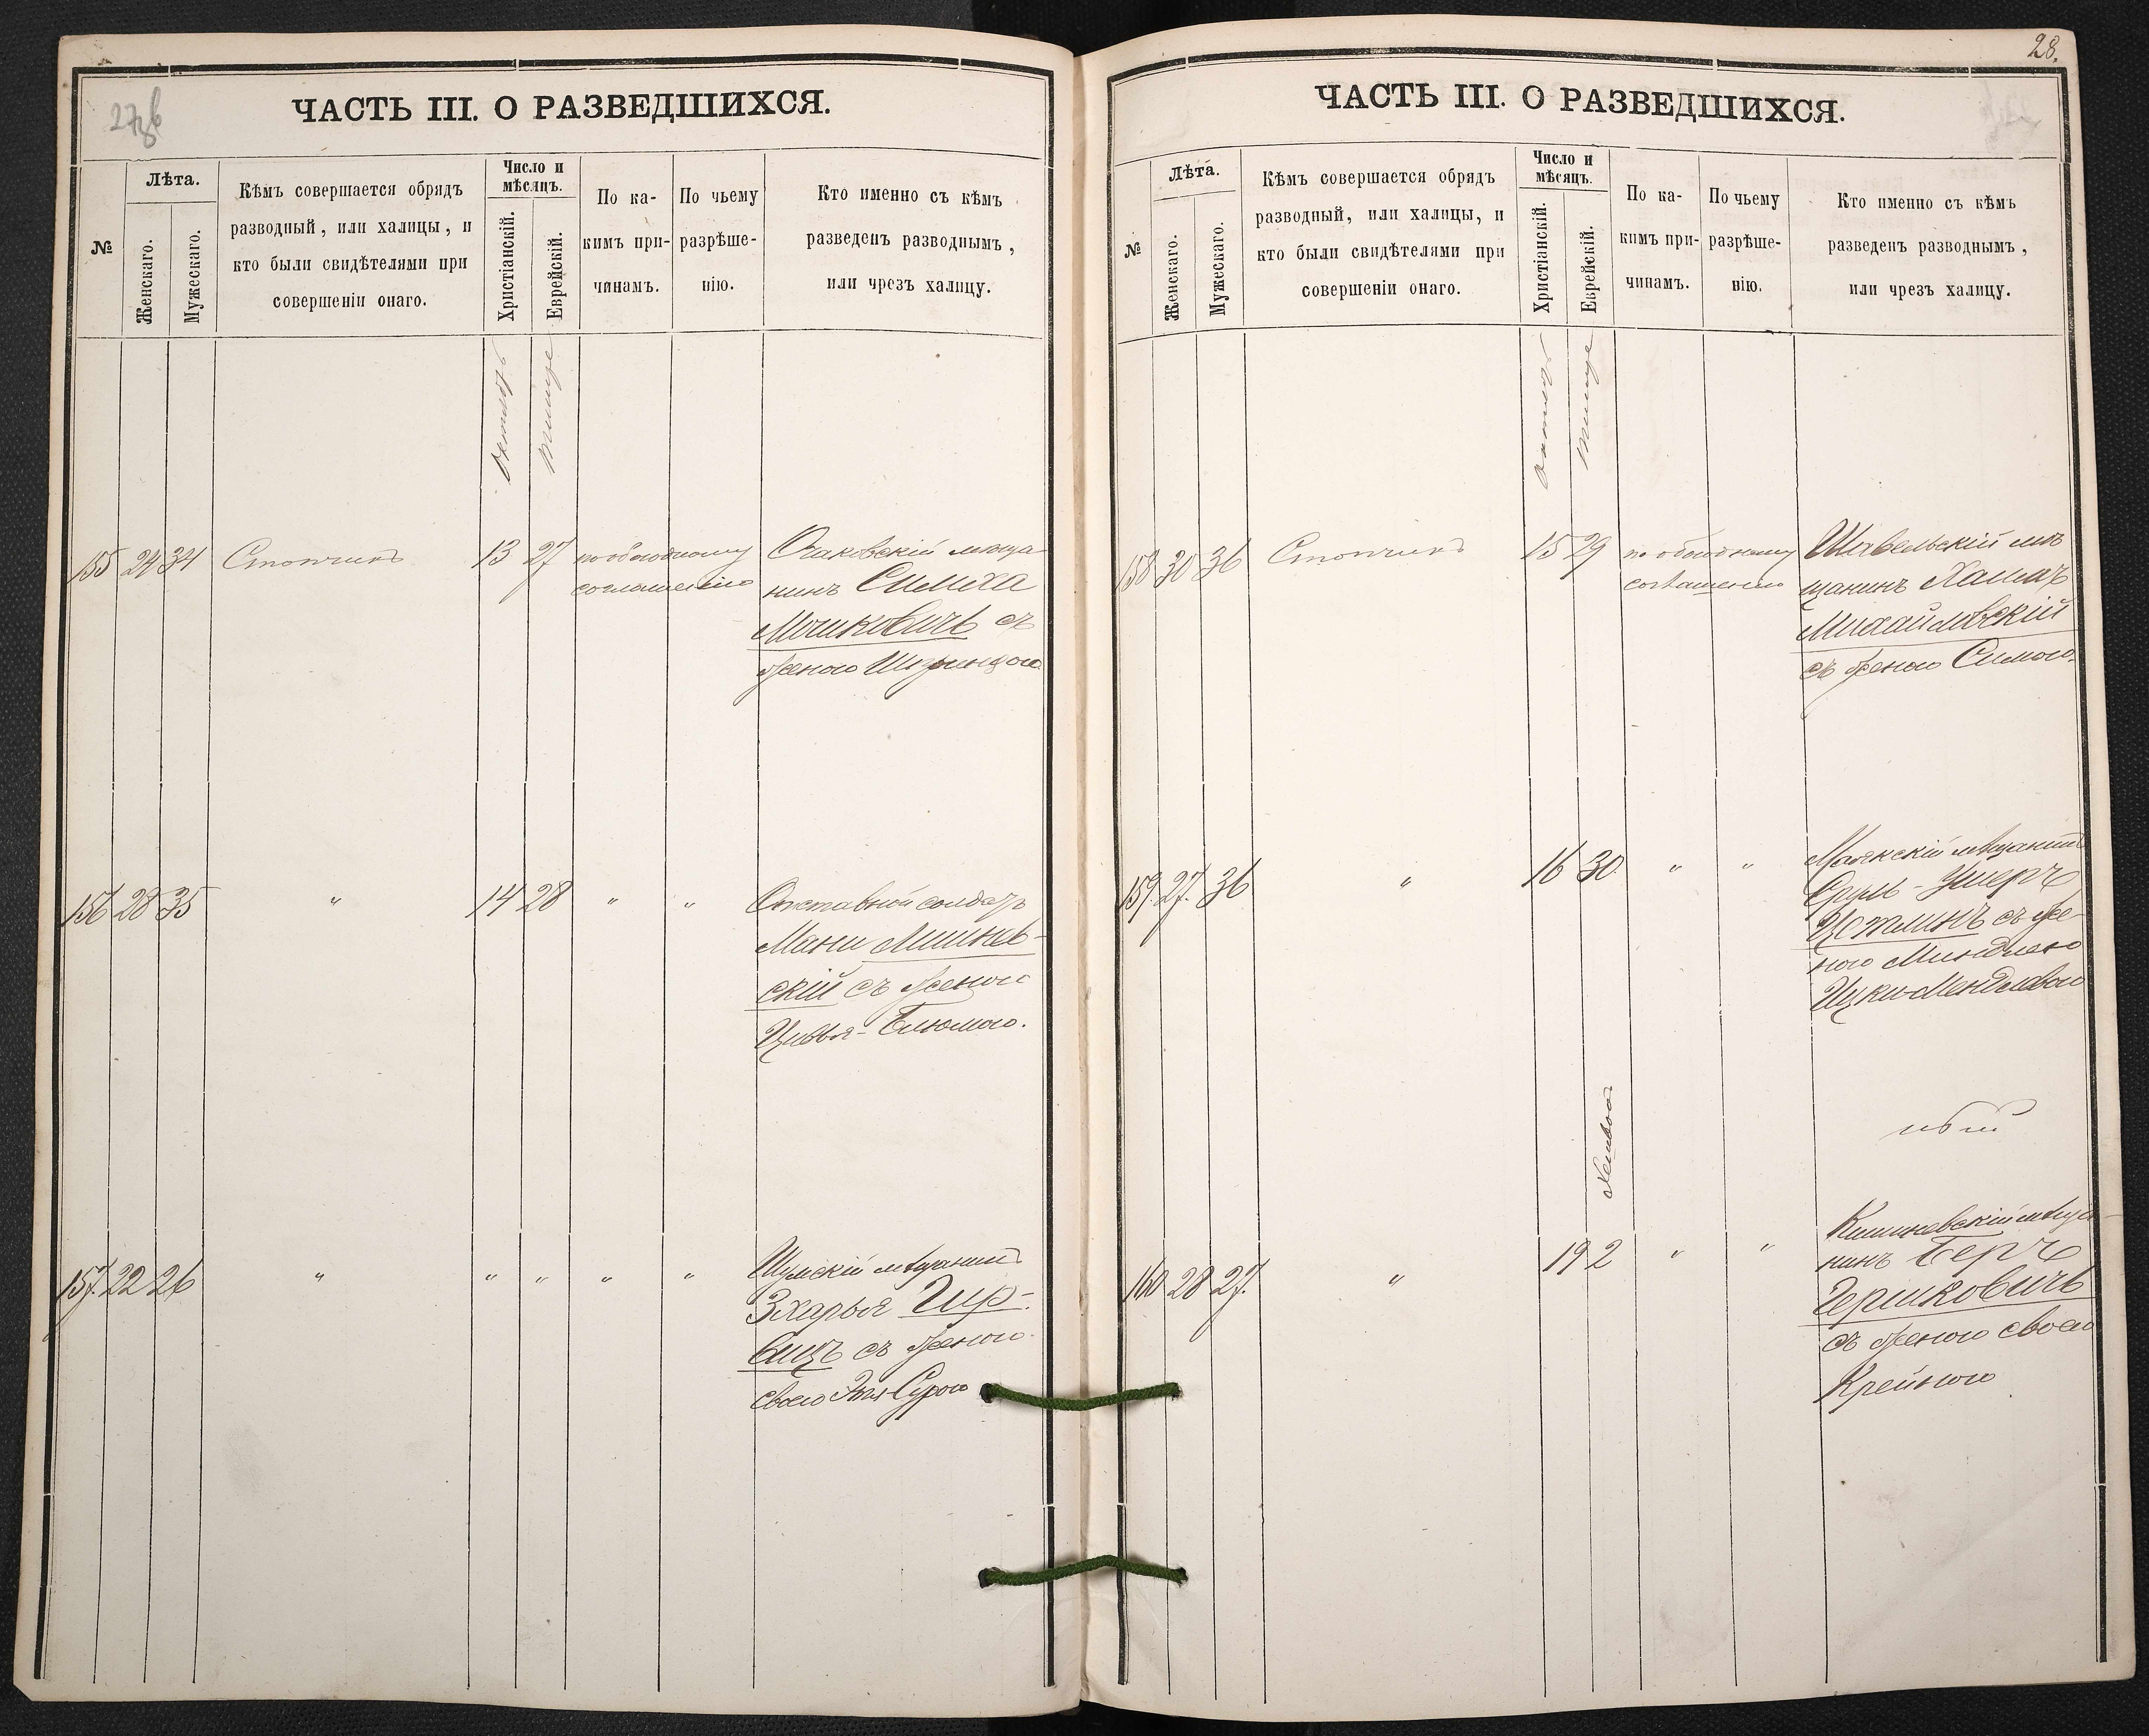 ЧАСТЬ III. О РАЗВЕДШИХСЯ.
№
Лѣта.
Женскаго.
Мужескаго.
Кѣмъ совершается обрядъ
разводный, или халицы, и
кто были свидѣтелями при
совершеніи онаго.
Число и
мѣсяцъ.
Христіанскій.
Еврейскій.
По ка-
кимъ при-
чинамъ.
По чьему
разрѣше-
нію.
Кто именно съ кѣмъ
разведенъ разводнымъ,
или чрезъ халицу.
Октябрь
Тишре
155 24 34 Стопчикъ 13 27 по обоюдному
соглашенію
Очаковскій меща
нинъ Симха
Мошковичъ съ
женою
156 28 35 " 14 28 " "
Отставной солдатъ
Мани Мишнев-
скій съ женою
Цивья-Блюмою.
157. 22 26 " " " " "
Шумскій мѣщанинъ
Зхарья Гур-
вицъ съ женою
своею Сурою
28.
ЧАСТЬ III. О РАЗВЕДШИХСЯ.
№
Лѣта.
Женскаго.
Мужескаго.
Кѣмъ совершается обрядъ
разводный, или халицы, и
кто были свидѣтелями при
совершеніи онаго.
Число и
мѣсяцъ.
Христіанскій.
Еврейскій.
По ка-
кимъ при-
чинамъ.
По чьему
разрѣше-
нію.
Кто именно съ кѣмъ
разведенъ разводнымъ,
или чрезъ халицу.
Октябрь
Тишре
158 30 36 Стопчикъ 15 29 по обоюдному
соглашенію
Шавельскій мѣ
щанинъ Хаимъ
Михайловскій
съ женою Симою.
159. 27. 36 " 16 30 " "
Маякскій мѣщанинъ
Сруль-Ушеръ
Цетлинъ съ же
ною Миндлею
Ицки-Менделевою
Хешвон
160 28 27. " 19 2 " "
Кишиневскій мѣща
нинъ Беръ
Гершковичъ
съ женою своею
Крейною